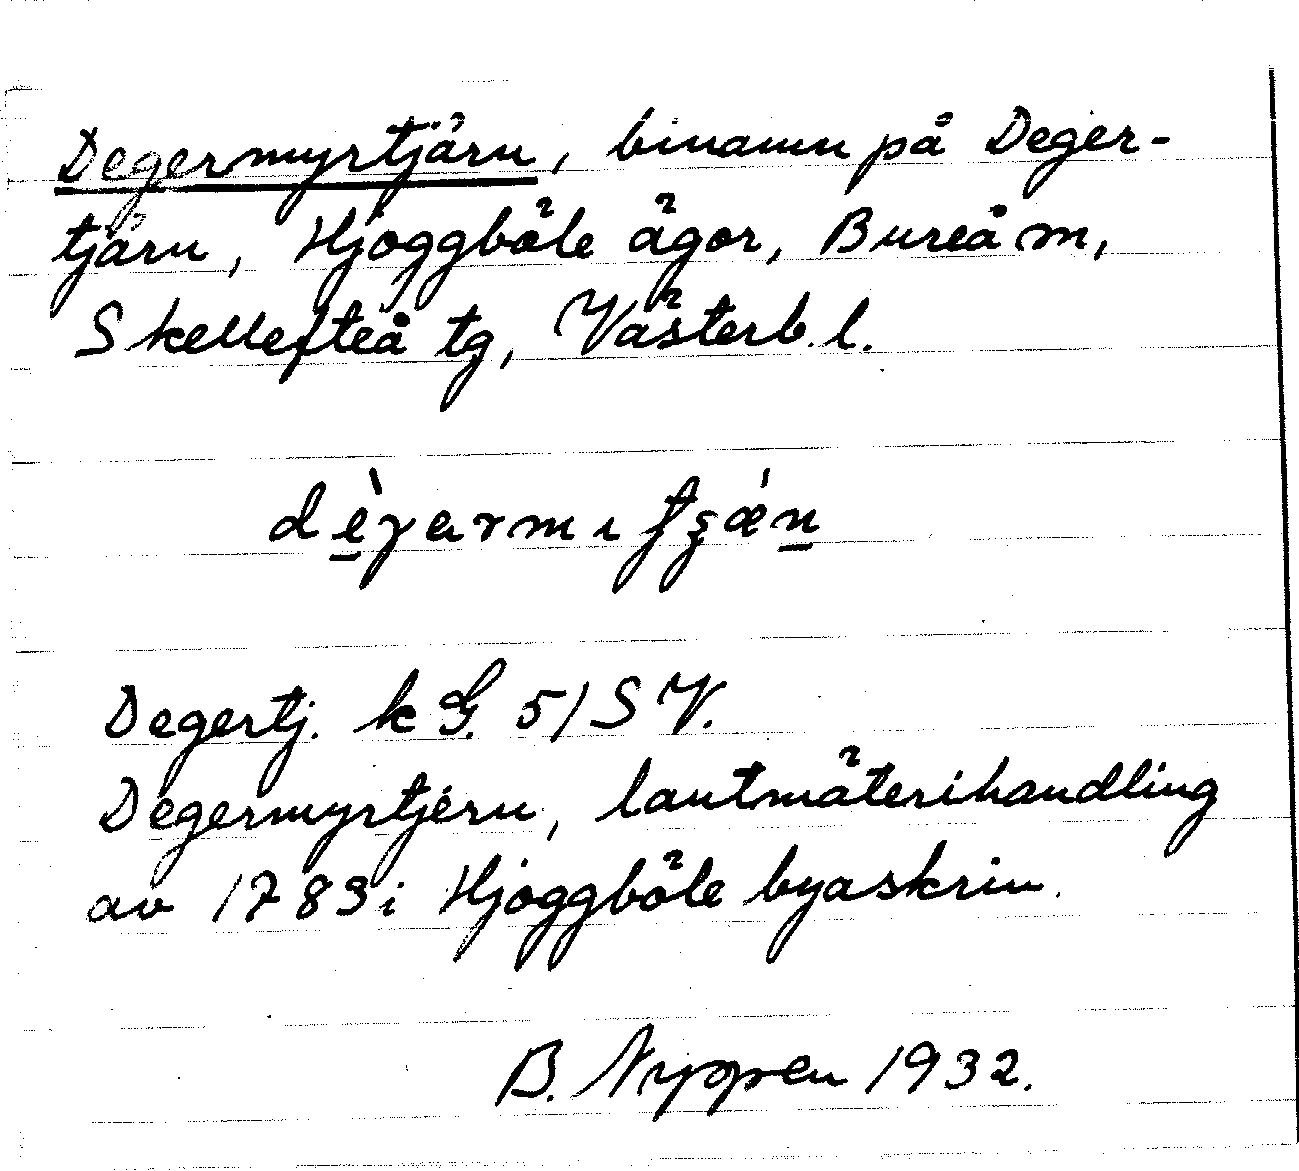 Degermyrtjärn, binamn på Deger-
tjärn, Hjoggböle ägor, Bureå m,
Skellefteå tg, Västerb. l.
Degertj. k G. 51 S V.
Degermyrtjern, lantmäterihandling
av 1783 i Hjoggböle byaskrin.
B. Nyppen 1932.